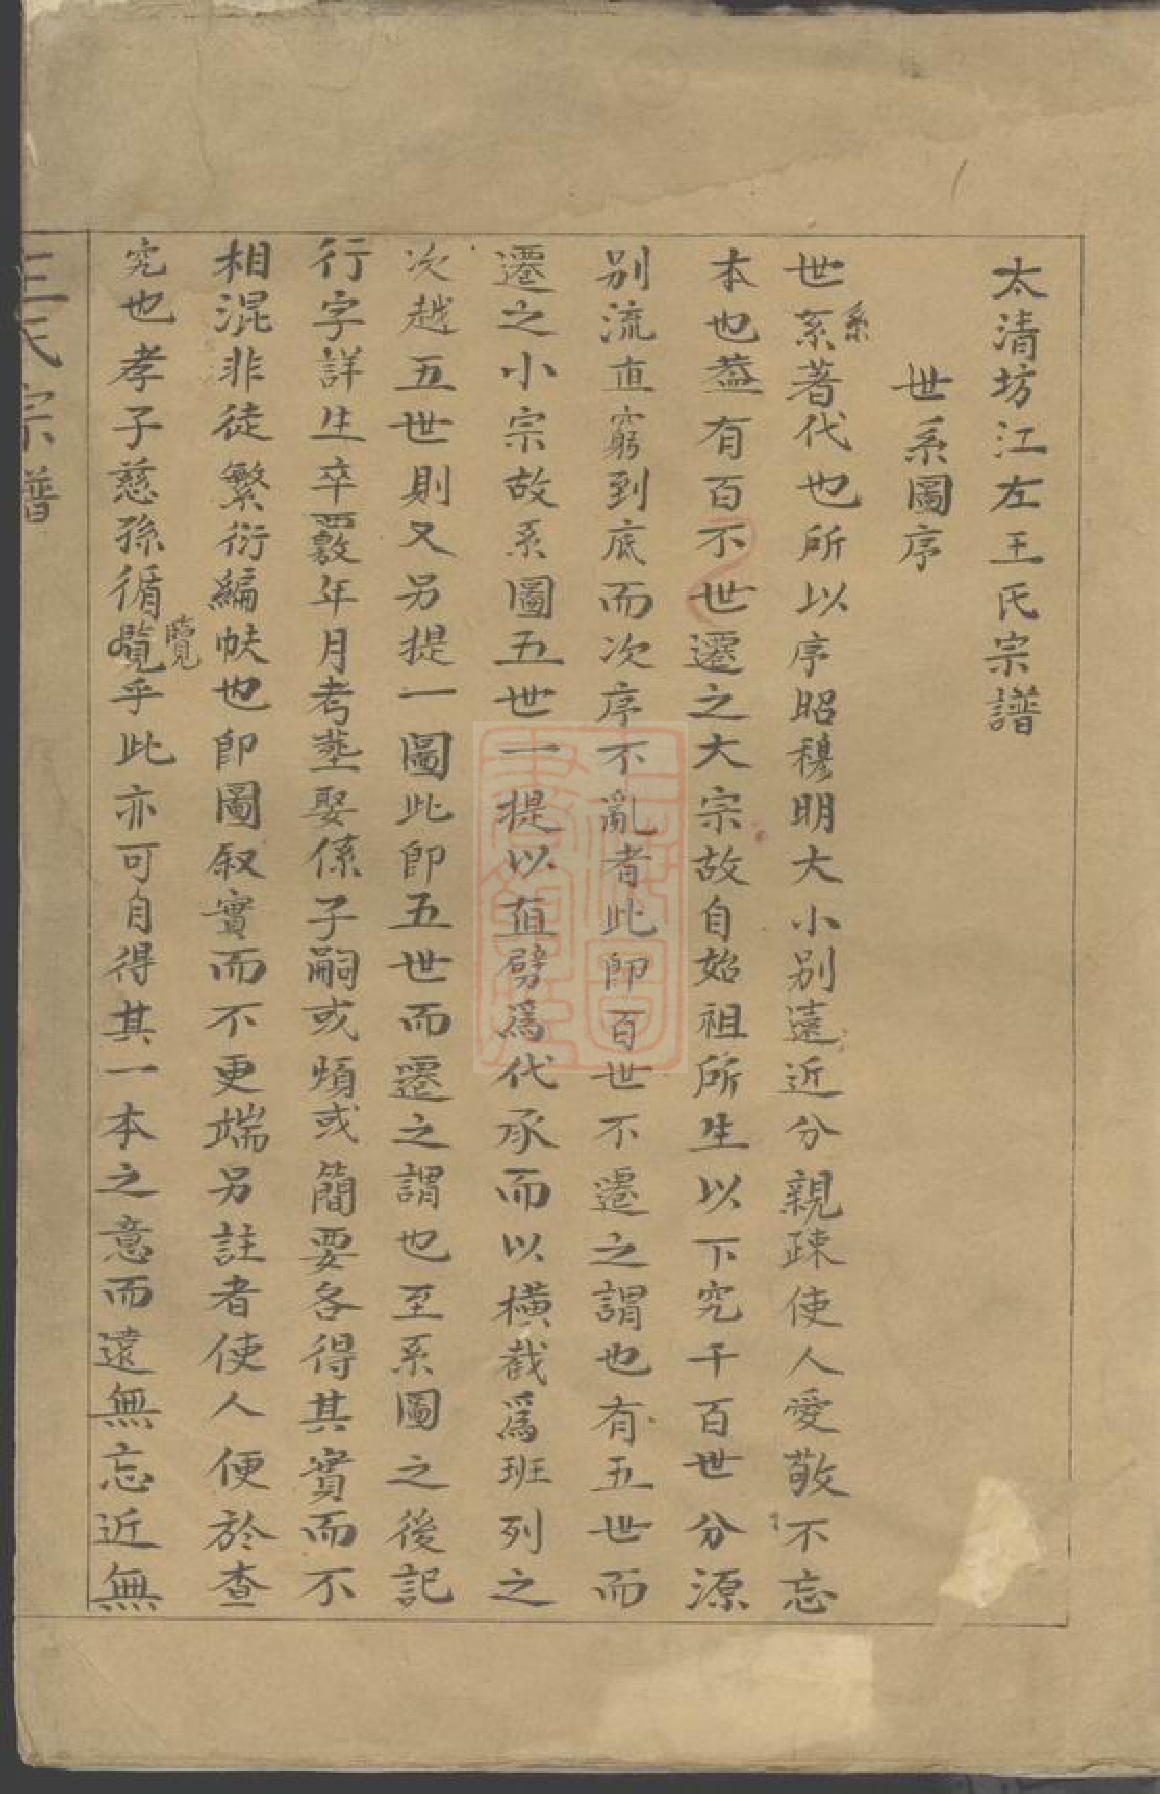 太清坊江左王氏宗譜
世系圖序
世系著代也所以序昭穆明大小別遠近分親疎使人愛敬不忘
系
本也蓋有百不世遷之大宗故自始祖所生以下究千百世分源
別流直窮到底而次序不亂者此即百世不遷之謂也有五世而
遷之小宗故系圖五世一提以直劈爲代承而以橫截爲班列之
次越五世則又另提一圖此即五世而遷之謂也至系圖之後記
行字詳生卒覈年月考塟娶係子嗣或煩或簡要各得其實而不
相混非徒繁衍編帙也即圖叙實而不更端另註者使人便於查
究也孝子慈孫循覽乎此亦可自得其一本之意而遠無忘近無
覽
王氏宗譜
上海圖書館藏